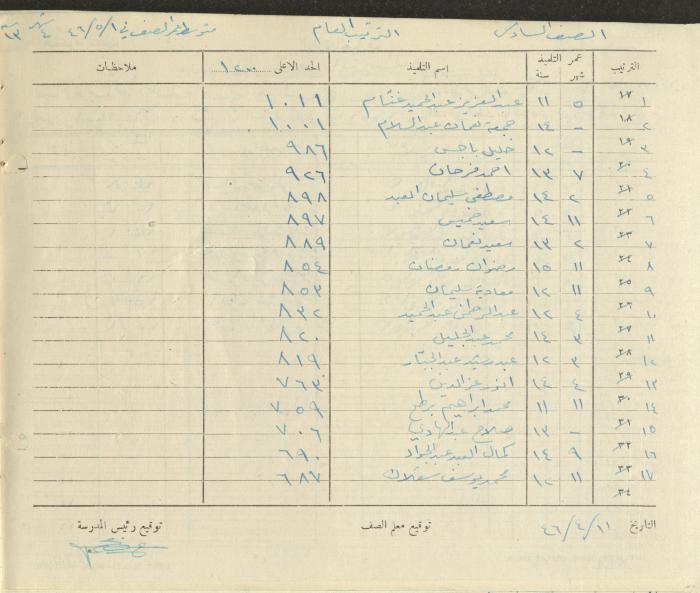 الصف السادس الترتيب العام متوسط عمر الصف في ٤٦/٥/١ شهر ٤ سنة ١٣
الترتيب عمر التلميذ شهر سنة اسم التلميذ الحد الاعلى ١٢٠٠ ملاحظات
١٧ ١ ٥ ١١ عبد العزيز عبد الحميد غشام ١٠١١
١٨ ٢ - ١٤ جمعة نعمان عبد السلام ١٠٠١
١٩ ٣ - ١٢ خليل ٩٨٦
٢٠ ٤ ٧ ١٣ احمد فرحان ٩٢٦
٢١ ٥ ٢ ١٤ مصطفى سليمان العبد ٨٩٨
٢٢ ٦ ١١ ١٤ سعيد خميس ٨٩٧
٢٣ ٧ ٢ ١٣ سعيد نعمان ٨٨٩
٢٤ ٨ ١١ ١٥ رضوان رمضان ٨٥٤
٢٥ ٩ ١١ ١٢ معاوية سليمان ٨٥٣
٢٦ ١٠ ٤ ١٢ عبد الرحمن عبد الحميد ٨٣٢
٢٧ ١١ ٣ ١٤ محمد عبد الجليل ٨٢٠
٢٨ ١٢ ٣ ١٢ عبد رشيد عبد الجبار ٨١٩
٢٩ ١٣ ٤ ١٤ انور عز الدين ٧٦٣
٣٠ ١٤ ١١ ١١ محمد ابراهيم ٧٥٩
٣١ ١٥ - ١٣ صلاح عبد الهادي ٧٠٦
٣٢ ١٦ ٩ ١٤ كمال العبد عبد الجواد ٦٩٠
٣٣ ١٧ ١١ ١٢ محمد يوسف ٦٨٧
٣٤
التاريخ ٤٦/٤/١١ توقيع معلم الصف توقيع رئيس المدرسة